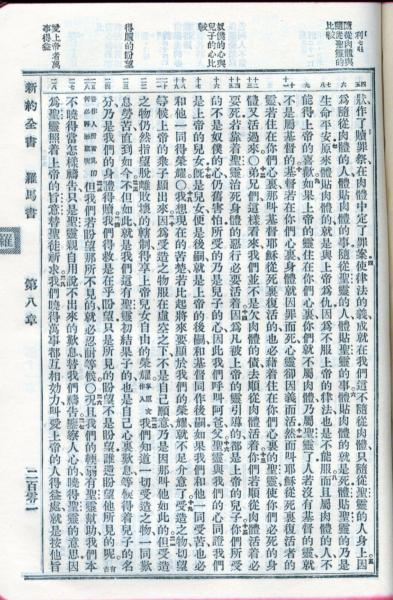 利七壯
隨從肉體與
隨從聖靈的
比較
奴僕的心與
兒子的心比
較
得贖的盼望
愛上帝者萬
事得益
狀作了贖罪祭在肉體中定了罪案使律法的義成就在我們這不隨從肉體只隨從聖靈的人身上因
爲隨從肉體的人體貼肉體的事隨從聖靈的人體貼聖靈的事體貼肉體的就是死體貼聖靈的乃是
生命平安原來體貼肉體的就是與上帝爲仇因爲不服上帝的律法也是不能服而且屬肉體的人不
能得上帝的喜歡如果上帝的靈住在你們心裏你們就不屬肉體乃屬聖靈了人若沒有基督的靈就
不是屬基督的基督若在你們心裏身體就因罪而死心靈卻因義而活然而叫耶穌從死裏復活者的
靈若住在你們心裏那叫基督耶穌從死裏復活的也必藉着住在你們心裏的聖靈使你們必死的身
體又活過來○弟兄們這樣看來我們並不是欠肉體的債去順從肉體活着你們若順從肉體活着必
要死若靠着聖靈治死身體的惡行必要活着因爲凡被上帝的靈引導的都是上帝的兒子你們所受
的不是奴僕的心仍舊害怕所受的乃是兒子的心因此我們呼叫阿爸父聖靈與我們的心同證我們
是上帝的兒女旣是兒女便是後嗣就是上帝的後嗣和基督同作後嗣如果我們和他一同受苦也必
和他一同得榮耀○我想現在的苦楚若比起將來要顯於我們的榮耀就不足介意了受造之物切望
等候上帝的衆子顯出來因爲受造之物服在虛空之下不是自己願意乃是因那叫他如此的但受造
之物仍然指望脫離敗壞的轄制得享上帝兒女自由的榮耀我們知道一切受造之物一同歎
息勞苦直到如今不但如此就是我們這有聖靈初結果子的也是自己心裏歎息等候得着兒子的名
分乃是我們的身體得贖我們得救是在乎盼望只是所見的盼望不是盼望誰還盼望他所見的呢
但我們若盼望那所不見的就必忍耐等候○況且我們的軟弱有聖靈幫助我們本
不曉得當怎樣禱告只是聖靈親自用說不出來的歎息替我們禱告鑒察人心的曉得聖靈的意思因
爲聖靈照着上帝的旨意替聖徒祈求我們曉得萬事都互相効力叫愛上帝的人得益處就是按他旨
新約全書　羅馬書　第八章　二百零一
羅